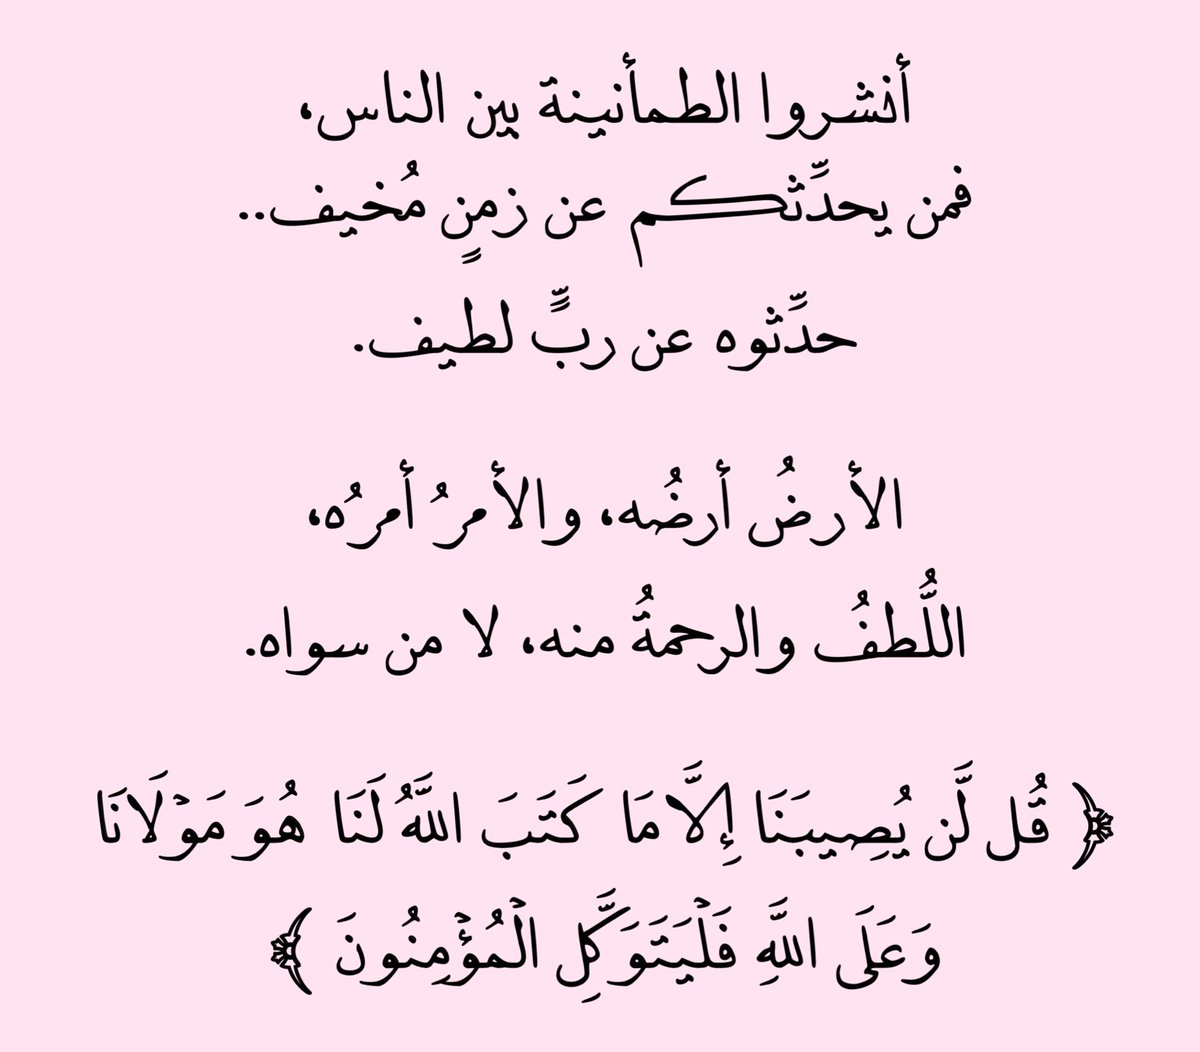 أنشروا الطمأنينة بين الناس،
فمن يحدِّثكم عن زمنٍ مُخيف..
حدِّثوه عن ربٍّ لطيف.
الأرضُ أرضُه، والأمرُ أمرُه،
اللُّطفُ والرحمةُ منه، لا من سواه.
﴿ قُل لَّن يُصِيبَنَا إِلَّا مَا كَتَبَ اللَّهُ لَنَا هُوَ مَوْلَانَا
وَعَلَى اللَّهِ فَلْيَتَوَكَّلِ الْمُؤْمِنُونَ ﴾